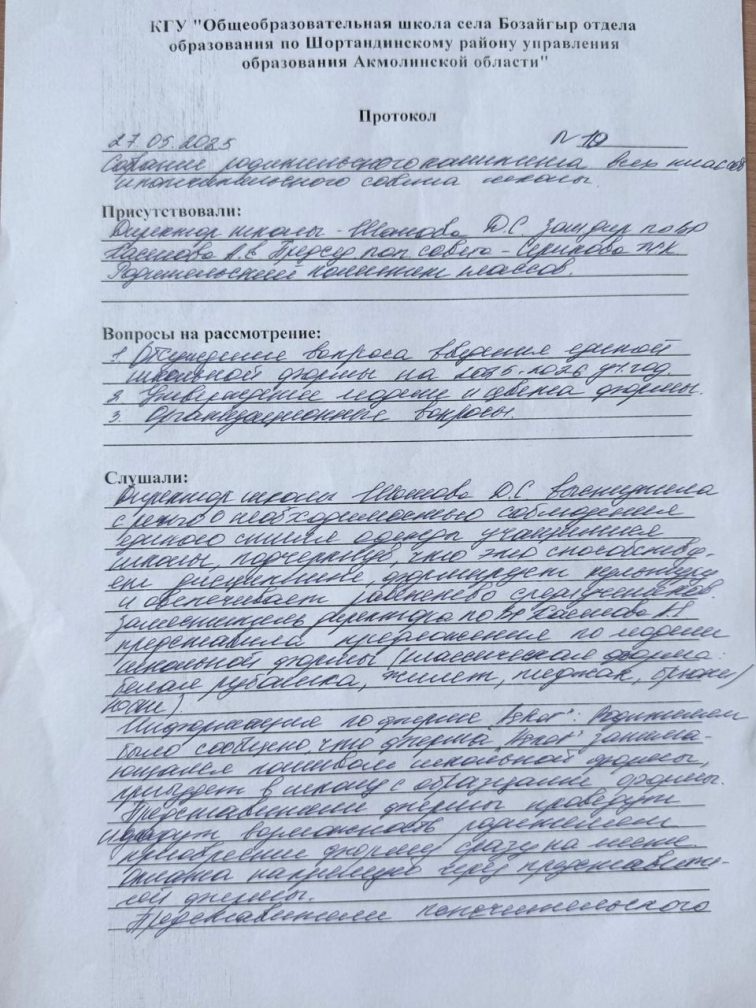 КГУ "Общеобразовательная школа села Бозайгыр отдела
образования по Шортандинскому району управления
образования Акмолинской области"
Протокол
27.05.2025 N 10
Собрание родительского комитета всех классов
и попечительского совета школы.
Присутствовали:
Директор школы - Д.С. Зам дир по ВР
А.Е Предсе поп совета - Серикова Ж К
Родительский комитет классов.
Вопросы на рассмотрение:
1. Обсуждение вопроса введения единой
школьной формы на 2025-2026 уч. год.
2. Утверждение модели и цвета формы.
3. Организационные вопросы.
Слушали:
Директор школы Д.С выступила
с речью о необходимостью соблюдения
единого стиля одежды учащимися
школы, подчеркнув, что это способству-
ет дисциплине, формирует культуру
и обеспечивает равенство среди учеников.
Заместитель директора по ВР
представила предложения по модели
школьной формы (классическая форма:
белая рубашка, жилет, пиджак, брюки/
Информация по фирме : Родителям
было сообщено, что фирма занима-
ющаяся пошивом школьной формы,
приедет в школу с образцами формы.
Представители фирмы проведут
и дадут возможность родителям
приобрести форму сразу на месте.
Оплата напрямую через представите-
лей фирмы.
Представители попечительского